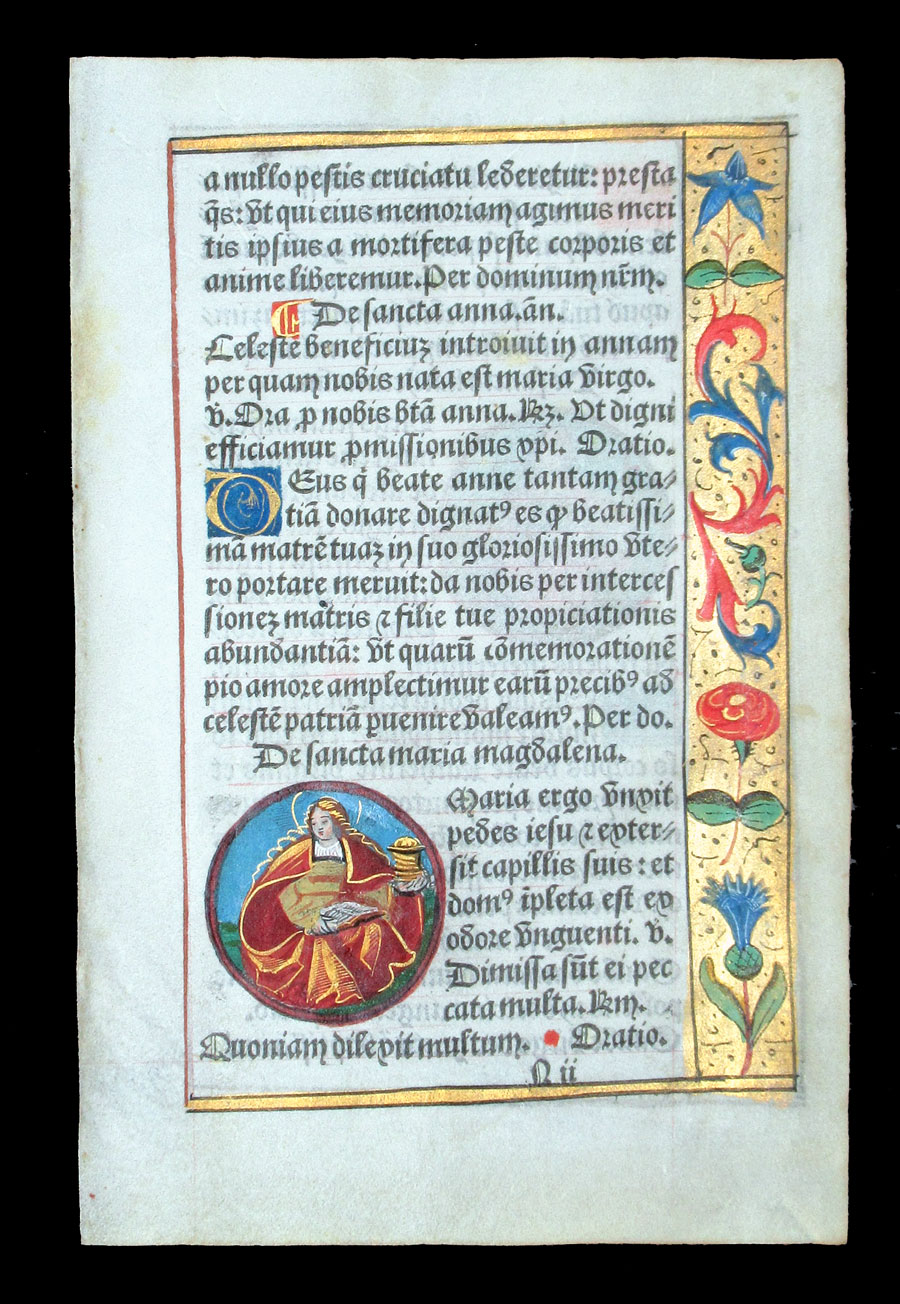 a nullo pestis cruciatu lederetur: presta
q̄s: vt qui eius memoriam agimus meri
tis ipsius a mortifera peste corporis et
anime liberemur. Per dominum nr̄m.
De sancta anna. an̄.
Celeste beneficiuꝫ introiuit in annam
per quam nobis nata est maria virgo.
v̄. Ora ꝓ nobis btā anna. Rꝫ. Vt digni
efficiamur ꝓmissionibus xpi. Oratio.
DEus q̄ beate anne tantam gra⸗
tiā donare dignatꝰ es ꝙ beatissi⸗
mā matrē tuaꝫ in suo gloriosissimo vte⸗
ro portare meruit: da nobis per interces
sioneꝫ matris ⁊ filie tue propiciationis
abundantiā: vt quarū cōmemorationē
pio amore amplectimur earū precibꝰ ad
celestē patriā ꝑuenire valeamꝰ. Per do.
De sancta maria magdalena.
Maria ergo vnxit
pedes iesu ⁊ exter⸗
sit capillis suis: et
domꝰ īpleta est ex
odore vnguenti. v̄.
Dimissa sūt ei pec
cata multa. Rm̄.
Quoniam dilexit multum. Oratio.
N ii